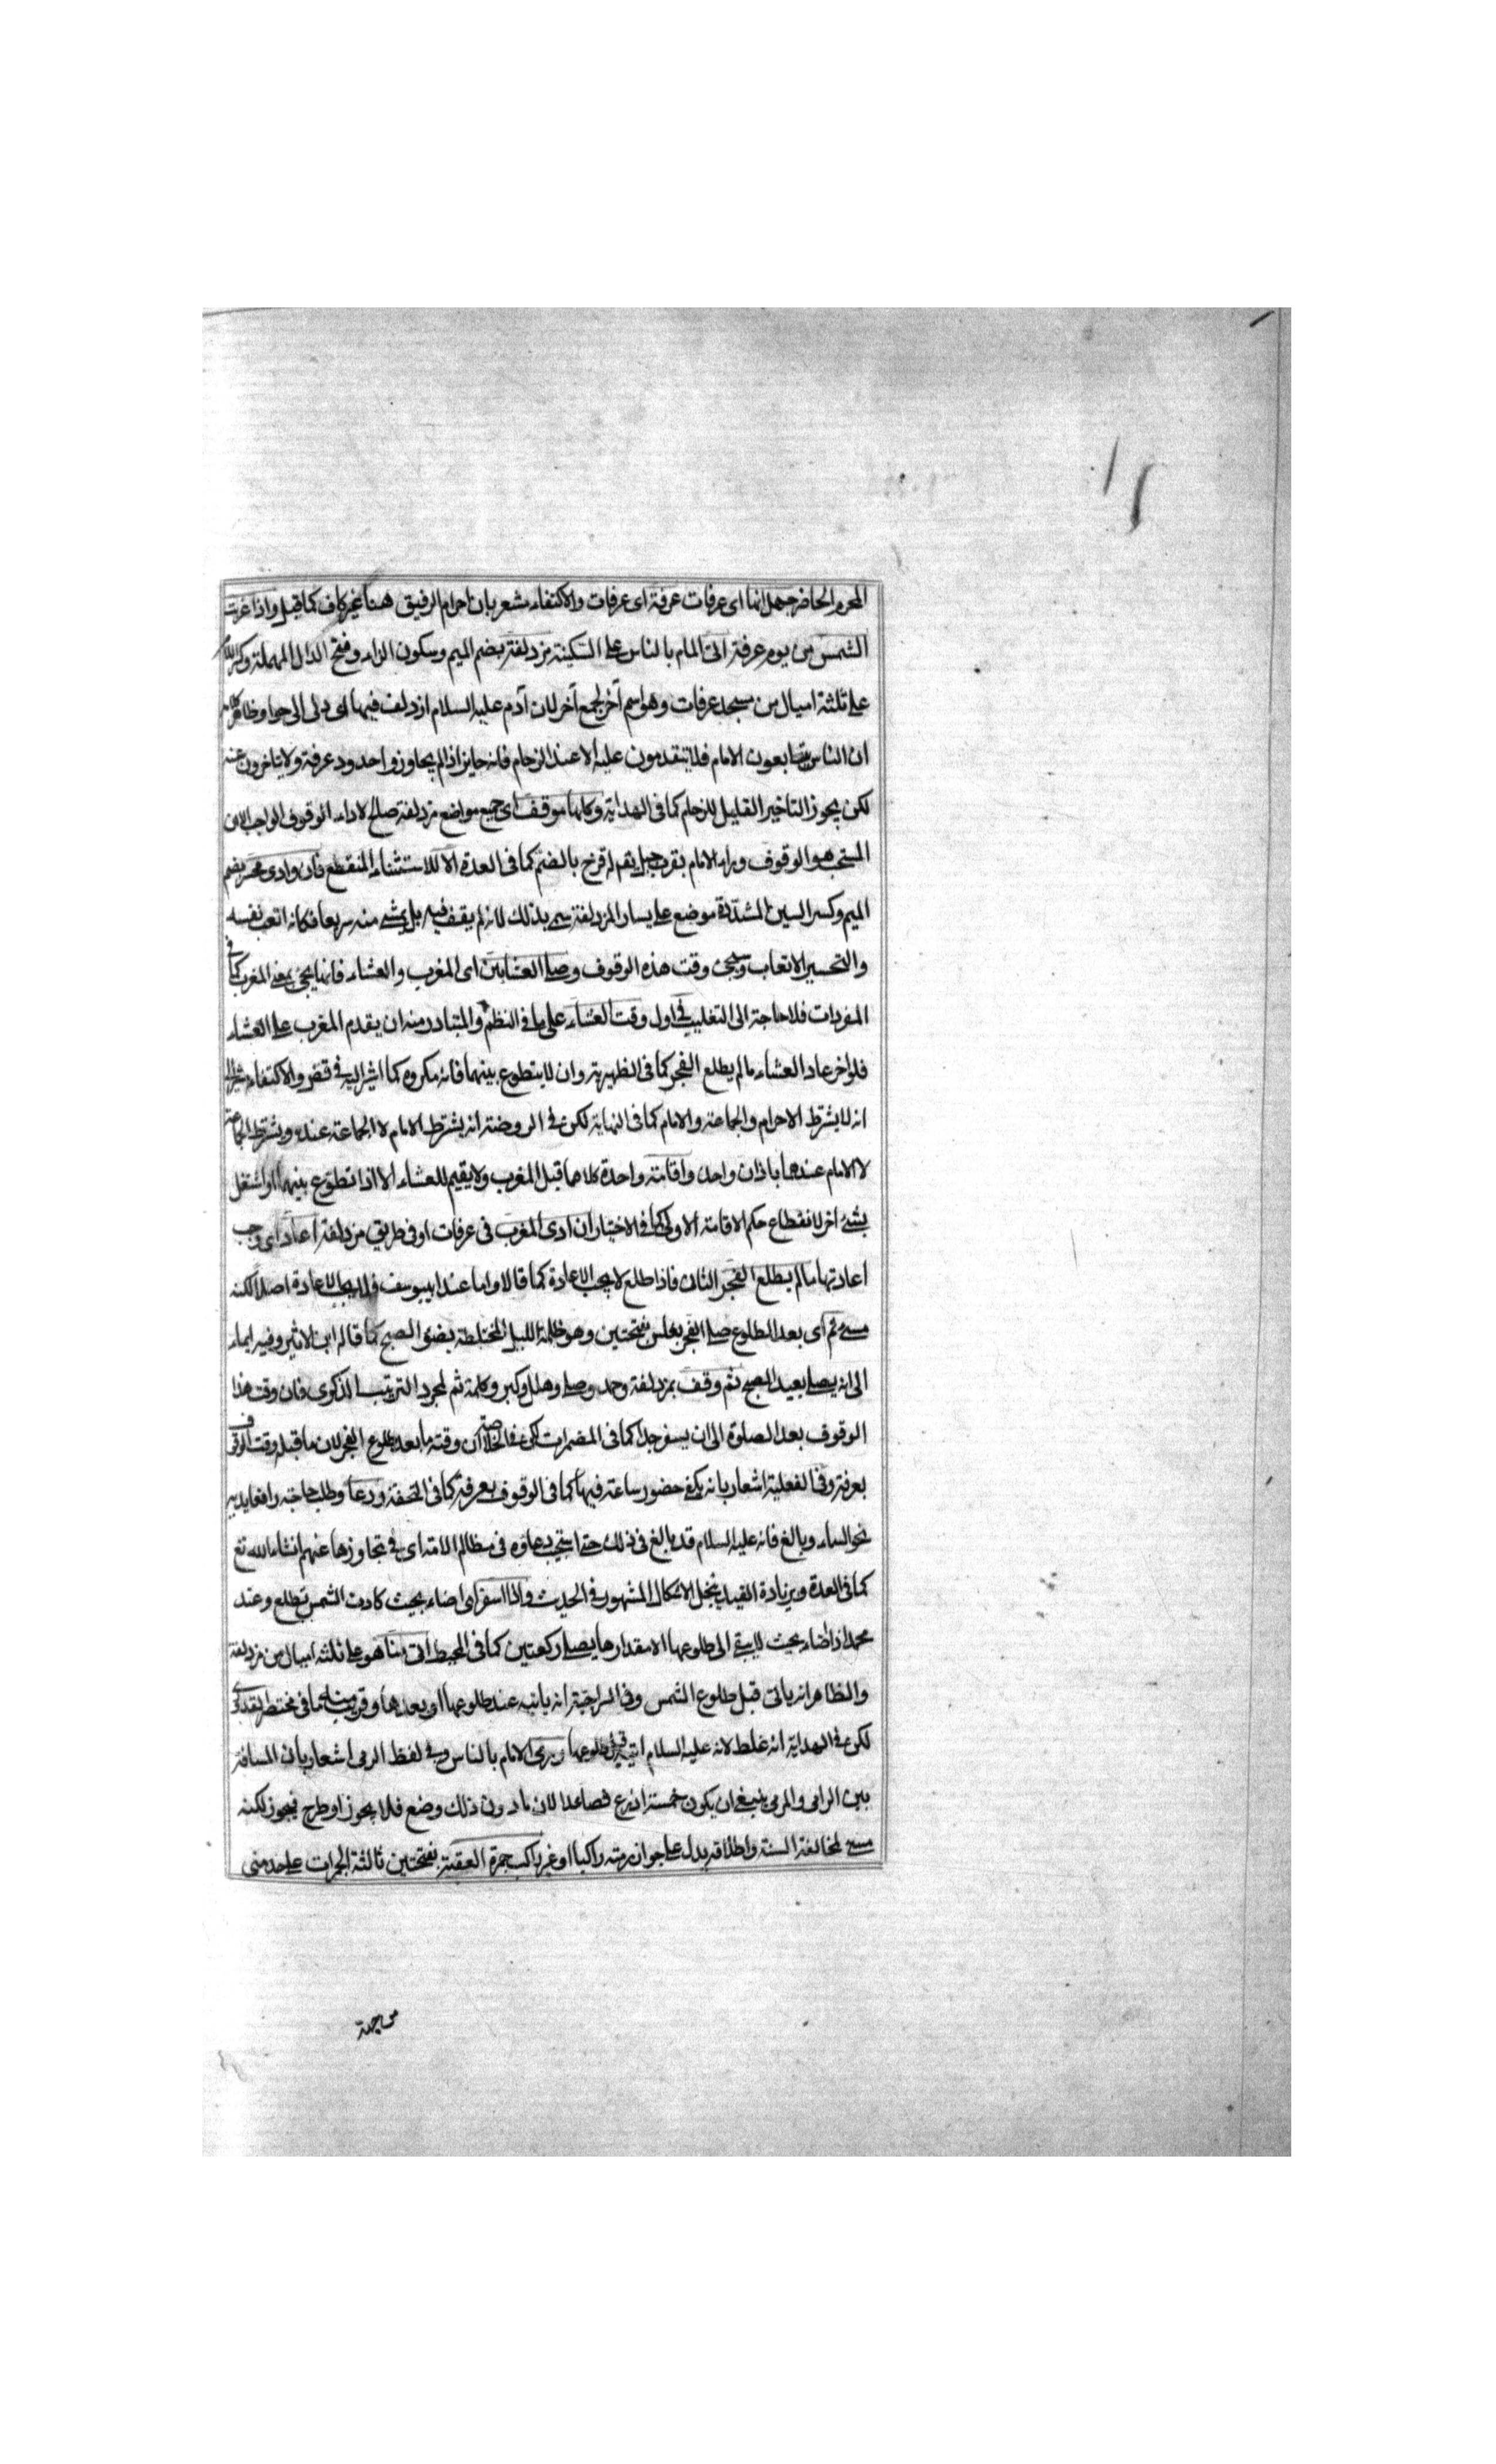 المحرم الحاضر جهل انها اى عرفات عرفة اى عرفات والاكتفاء مشعر بان احرام الرفيق هنا غير كاف كما قيل واذا غربت
الشمس من يوم عرفة اتى الامام بالناس على السكينة مزدلفة بضم الميم وسكون الزاء وفتح الدال المهملة وكسر اللام
على ثلثة اميال من مسجد عرفات وهو اسم آخر لجمع آخر لان آدم عليه السلام ازدلف فيها اى دنى الى حوا وظاهر كلامه
ان الناس يتابعون الامام فلا يتقدمون عليه الا عند الزحام فانه جايز اذا لم يجاوزوا حدود عرفة ولا يتاخرون عنه
لكن يجوز التاخير القليل للزحام كما فى الهداية وكلها موقف اى جميع مواضع مزدلفة صالح لاداء الوقوف الواجب الا ان
المستحب هو الوقوف وراء الامام بقرب جبل يقع له قزح بالضم كما فى العدة الا للاستثناء المنقطع فان وادى محسر بضم
الميم وكسر السين المشددة موضع على يسار المزدلفة سمى بذلك لانه لم يقف فيه بل يمشى منه سريعا فكانه اتعب نفسه
والتحسير الاتعاب وسيجئ وقت هذه الوقوف وصلى العشائين اى المغرب والعشاء فانها يجئ بمعنى المغرب كما فى
المفردات فلا حاجة الى التغليب فى اول وقت العشاء على ما فى النظم والمتبادر منه ان يقدم المغرب على العشاء
فلو اخر عاد العشاء ما لم يطلع الفجر كما فى الظهيرية وان لا يتطوع بينهما فانه مكروه كما اشير اليه فى قصر والاكتفاء مشير الى
انه لا يشترط الاحرام والجماعة والامام كما فى النهاية لكن فى الروضة انه يشترط الامام لا الجماعة عنده ويشترط الجماعة
لا الامام عندهما باذان واحد واقامة واحدة كلاهما قبل المغرب ولا يقيم للعشاء الا اذا تطوع بينهما او اشتغل
بشئ اخر لانقطاع حكم الاقامة الاولى كما فى الاختيار ان ادى المغرب فى عرفات او فى طريق مزدلفة اعاد اى وجب
اعادتها ما لم يطلع الفجر الثانى فاذا طلع لا يجب الاعادة كما قالا واما عند ابى يوسف فلا يجب الاعادة اصلا لكنه
مسئ ثم اى بعد الطلوع صلى الفجر بغلس بفتحتين وهو ظلمة الليل المختلطة بضوء الصبح كما قاله ابن الاثير وفيه ايماء
الى انه يصلى بعيد الصبح ثم وقف بمزدلفة وحمد وصلى وهلل وكبر وكلمة ثم لمجرد الترتيب الذكرى فان وقت هذا
الوقوف بعد الصلوة الى ان يسفر جدا كما فى المضمرات لكن فى الخلاصة ان وقته ما بعد طلوع الفجر لان ما قبله وقت الوقوف
بعرفة وفى الفعلية اشعار بانه يكفى حضور ساعة فيها كما فى الوقوف بعرفة كما فى التحفة ودعا وطلب حاجته رافعا يديه
نحو السماء وبالغ فانه عليه السلام قد بالغ فى ذلك حتى استجيب دعاؤه فى مظالم الامة اى فى تجاوزها عنهم انشاء الله تع
كما فى العدة وبزيادة القيد ينحل الاشكال المشهور فى الحديث واذا اسفر اى اضاء بحيث كادت الشمس تطلع وعند
محمد اذا اضاء بحيث لا يبقى الى طلوعها الا مقدار ما يصلى ركعتين كما فى المحيط اتى منا هو على ثلثة اميال من مزدلفة
والظاهر انه ياتى قبل طلوع الشمس وفى السراجية انه ياتيه عند طلوعها او بعدها وقريب منه ما فى مختصر القدورى
لكن فى الهداية انه غلط لانه عليه السلام اتيه قبل طلوعها ورمى الامام بالناس وفى لفظ الرمى اشعار بان المسافة
بين الرامى والمرمى ينبغى ان يكون خمسة اذرع فصاعدا لان ما دون ذلك وضع فلا يجوز او طرح فيجوز لكنه
مسئ لمخالفة السنة واطلاقه يدل على جواز رميه راكبا او غير راكب جمرة العقبة بفتحتين ثالثة الجمرات على حد منى
من جهة